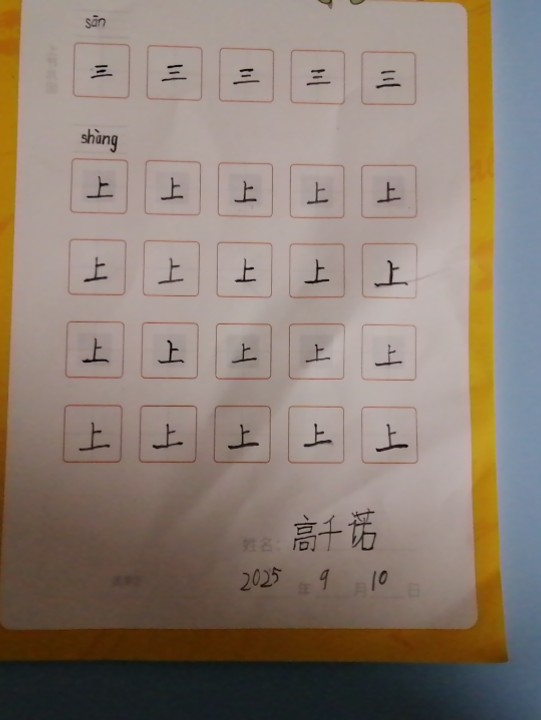 sān
三 三 三 三 三
shàng
上 上 上 上 上
上 上 上 上 上
上 上 上 上 上
上 上 上 上 上
姓名: 高千诺
2025 年 9 月 10 日